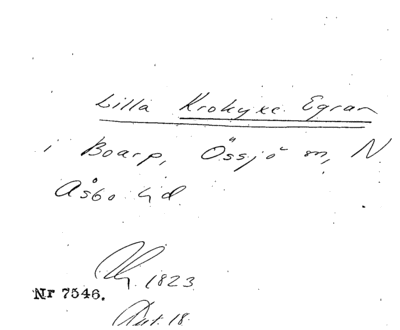 Lilla Krokyxe Egran
i Boarp, Össjö sn, N
Åsbo hd.
1823
Nr 7546.
Dat. 18